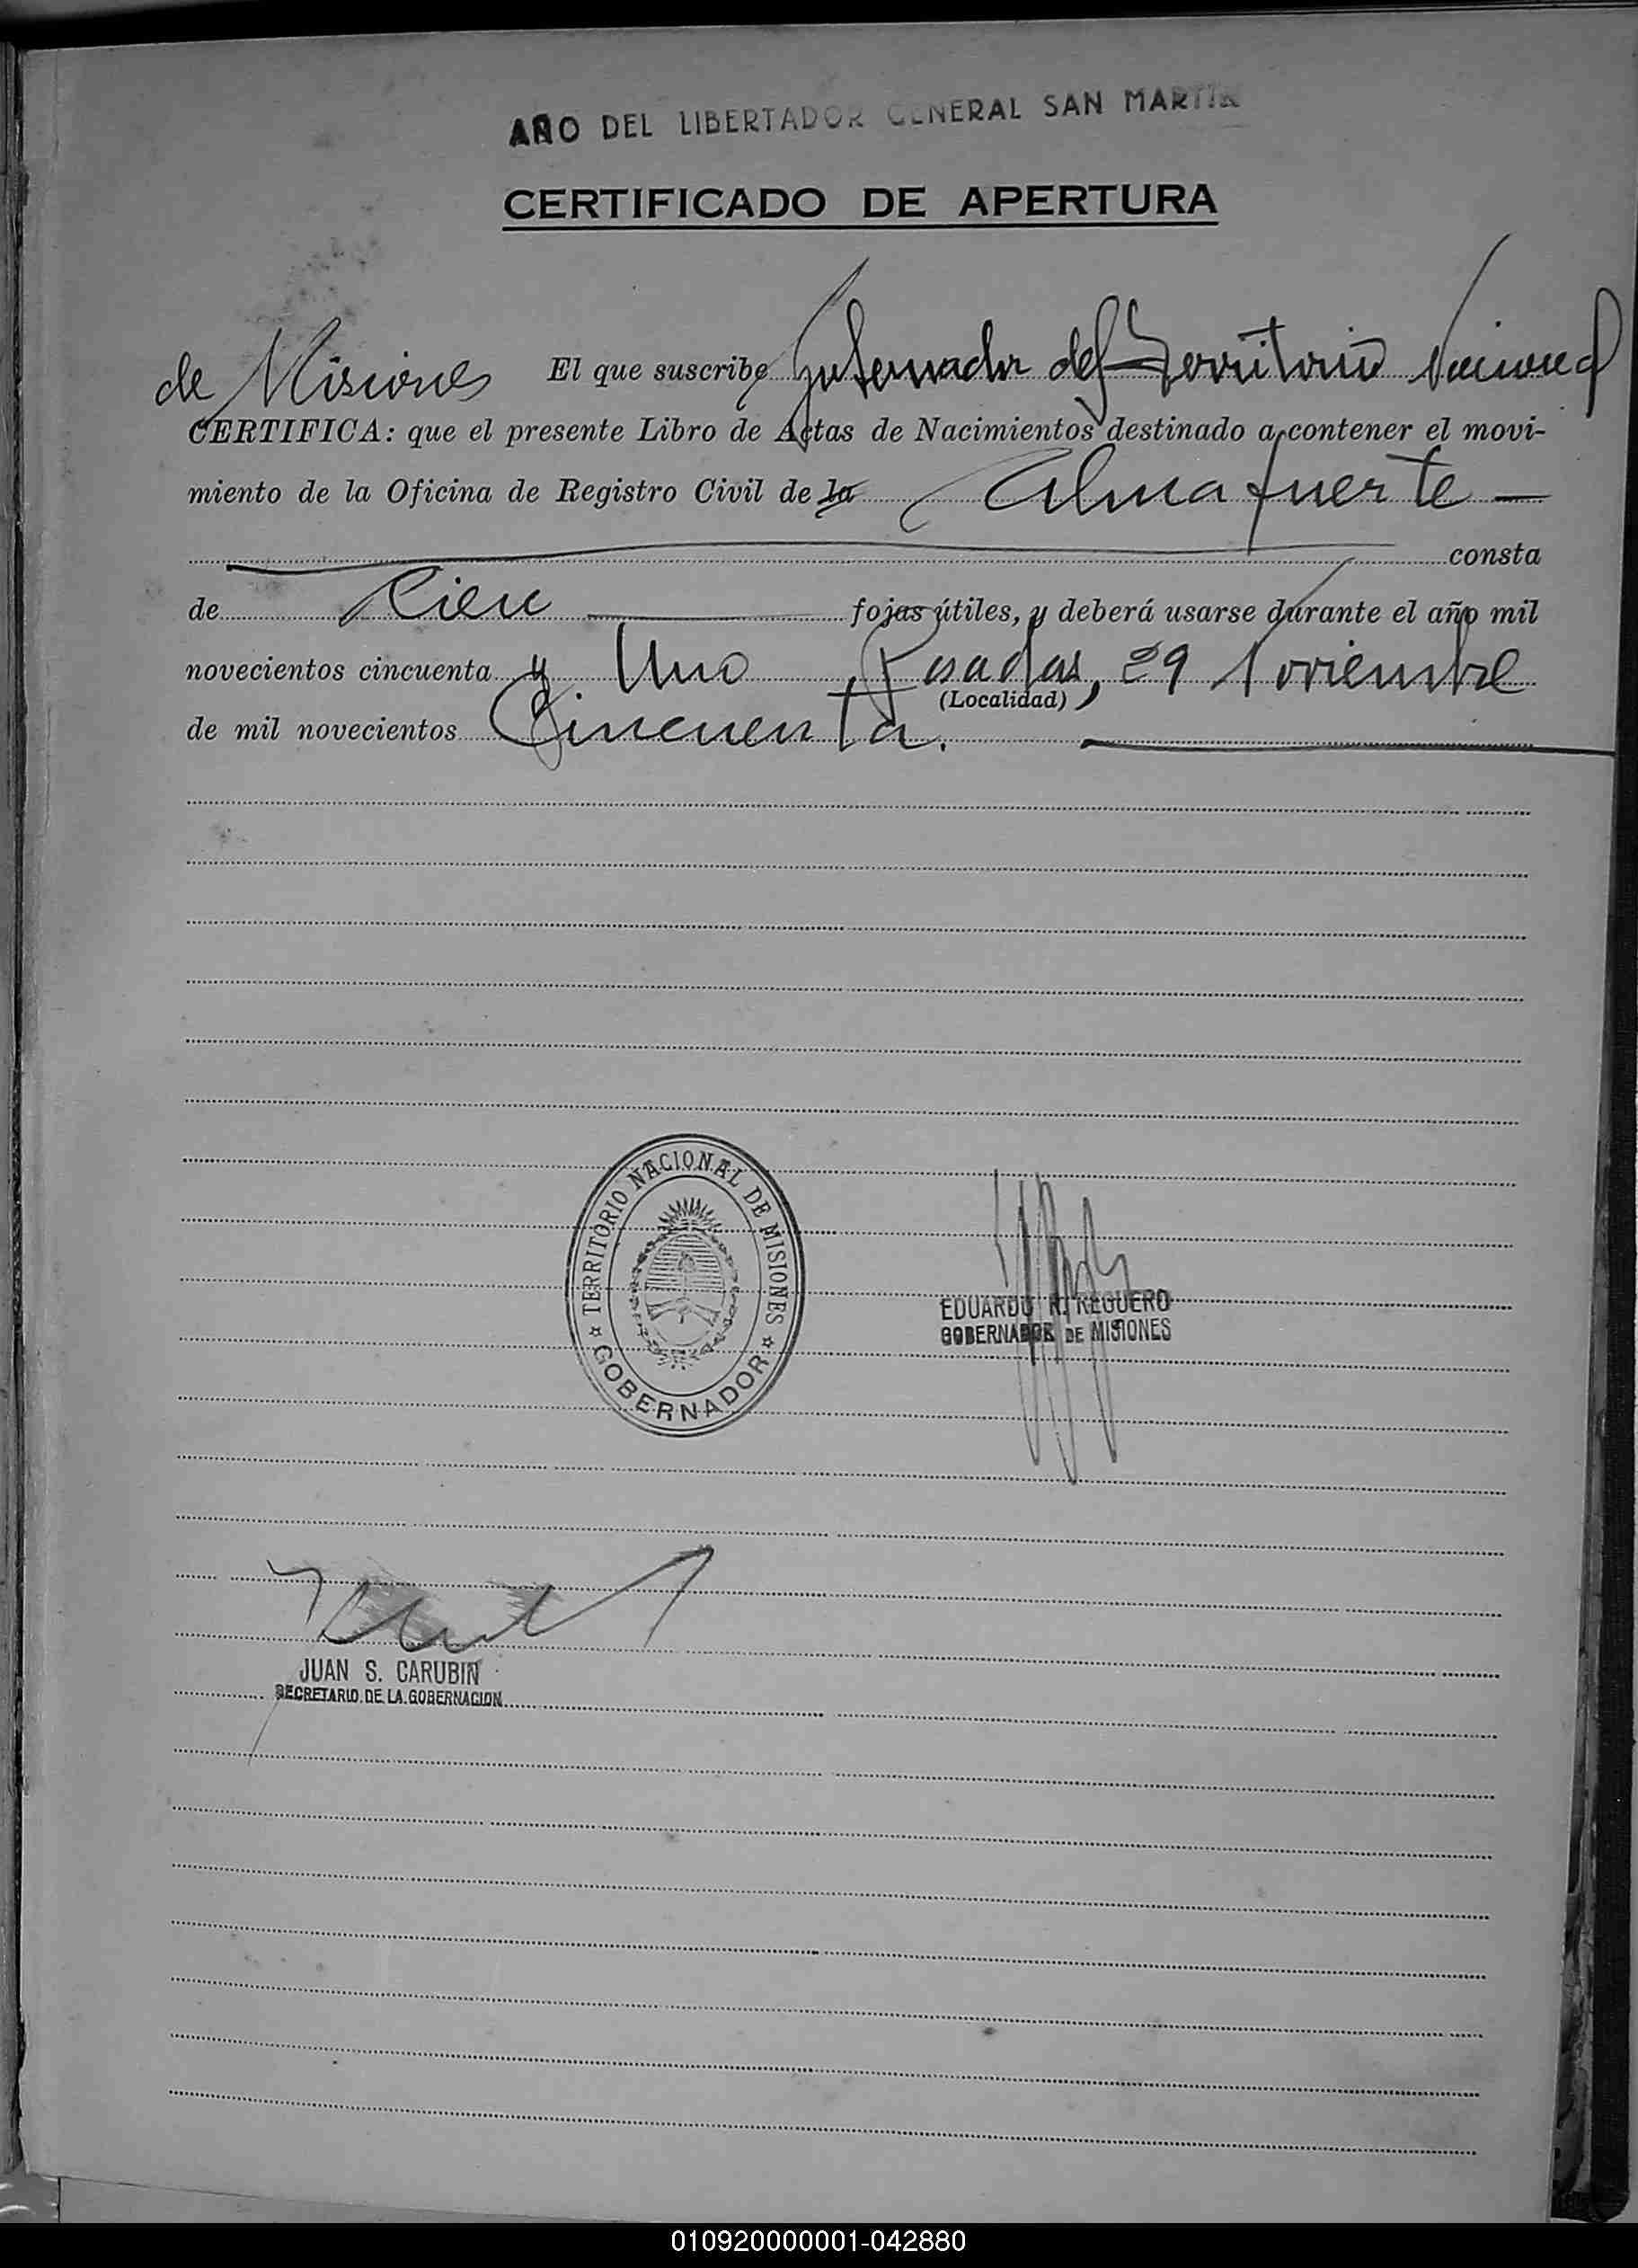 AÑO DEL LIBERTADOR GENERAL SAN MARTIN
CERTIFICADO DE APERTURA
El que suscribe Gobernador del Territorio Nacional
de Misiones
CERTIFICA: que el presente Libro de Actas de Nacimientos destinado a contener el movi-
miento de la Oficina de Registro Civil de la Almafuerte —
consta
de Cien fojas útiles, y deberá usarse durante el año mil
novecientos cincuenta y Uno Posadas, 29 Noviembre
(Localidad)
de mil novecientos Cincuenta.
TERRITORIO NACIONAL DE MISIONES
GOBERNADOR
EDUARDO R. REGUERO
GOBERNADOR DE MISIONES
JUAN S. CARUBIN
SECRETARIO DE LA GOBERNACION
010920000001-042880